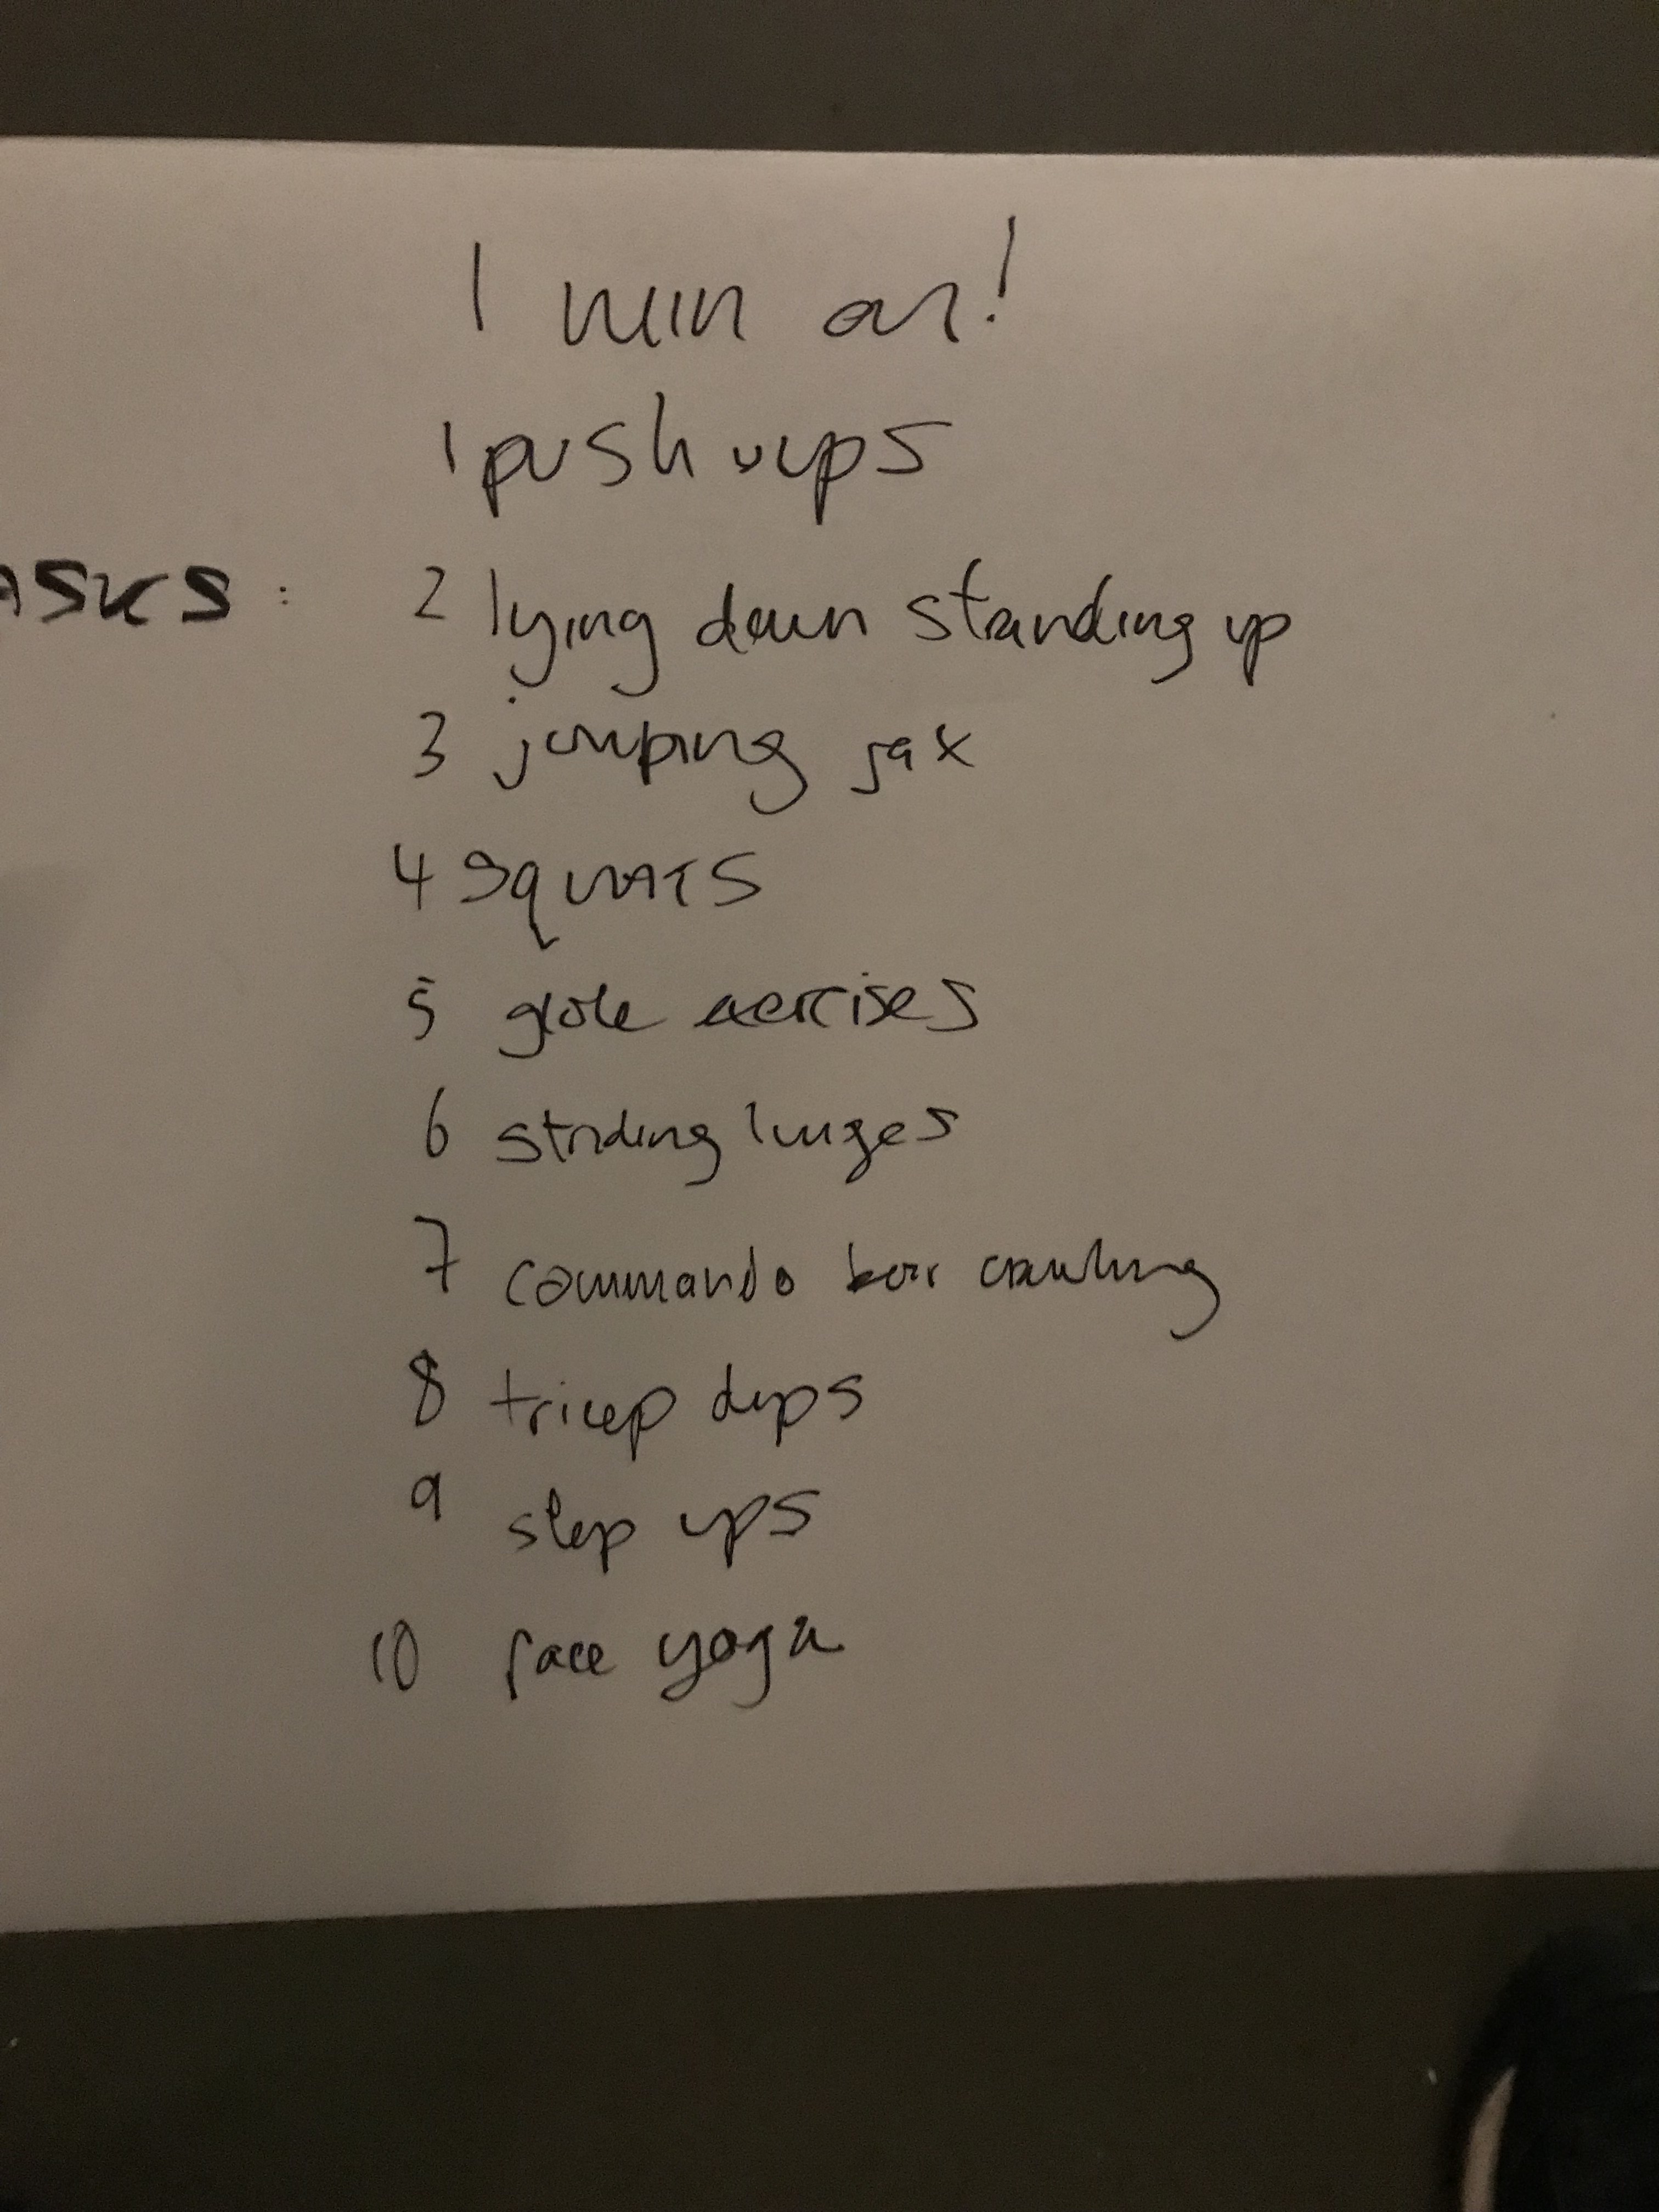 1 min on!
1 push ups
ASKS : 2 lying down standing up
3 jumping jax
4 squats
5 glute exercises
6 striding lunges
7 commando bear crawling
8 tricep dips
9 step ups
10 face yoga